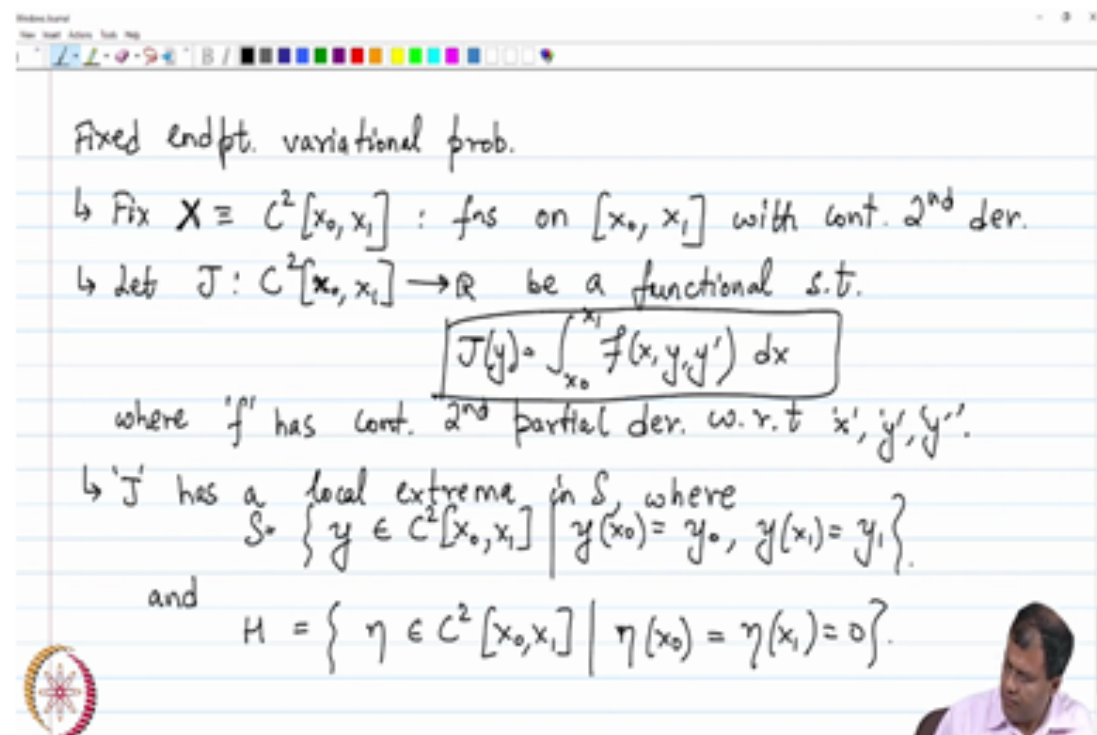 Windows Journal
View Insert Actions Tools Help
B I
Fixed endpt. variational prob.
↳ Fix X ≡ C²[x₀, x₁] : fns on [x₀, x₁] with cont. 2nd der.
↳ Let J : C²[x₀, x₁] → R be a functional s.t.
J(y) = ∫_{x₀}^{x₁} f(x, y, y') dx
where 'f' has cont. 2nd partial der. w.r.t 'x', 'y', 'y''.
↳ 'J' has a local extrema in S, where
S = { y ∈ C²[x₀, x₁] | y(x₀) = y₀, y(x₁) = y₁}.
and
H = { η ∈ C²[x₀, x₁] | η(x₀) = η(x₁) = 0}.